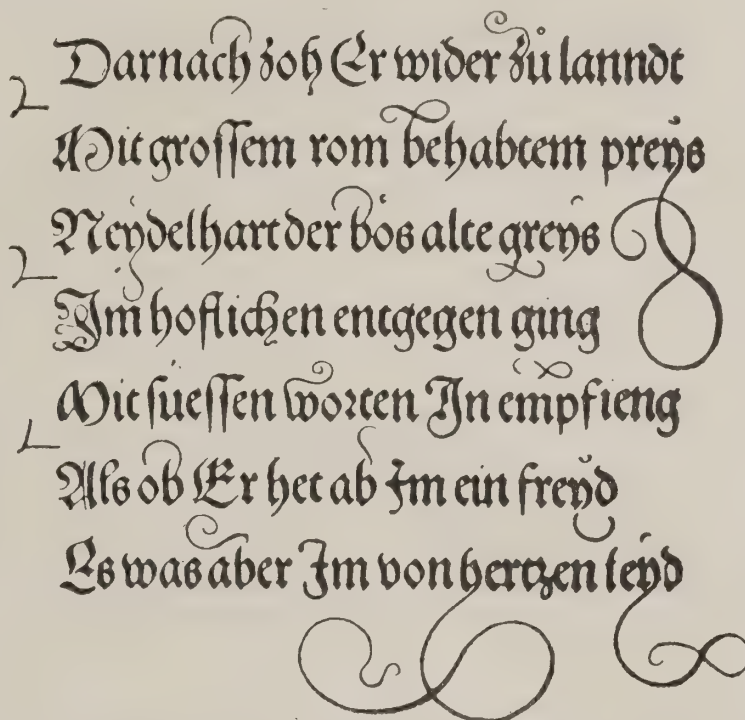 Darnach zoh Er wider zů lanndt
Mit grossem rom behabtem preys
Neydelhart der bös alte greys
Im hoflichen entgegen ging
Mit suessen worten In empfieng
Als ob Er het ab Im ein freyd
Es was aber Im von hertzen leyd